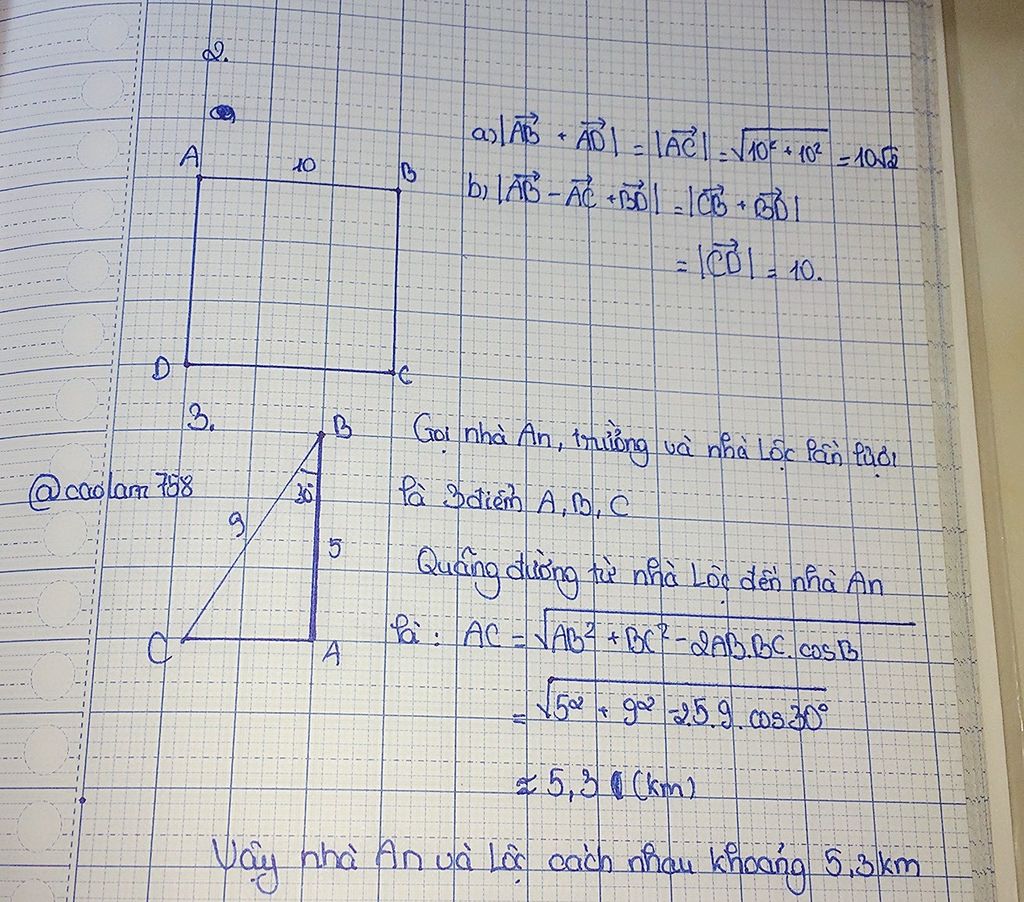 2.
A 10 B
D C
a) |AB→ + AD→| = |AC→| = √(10² + 10²) = 10√2
b) |AB→ - AC→ + BD→| = |CB→ + BD→|
= |CD→| = 10.
3.
B
30
9
5
C A
@caolam758
Gọi nhà An, trường và nhà Lộc lần lượt
là 3 điểm A, B, C
Quãng đường từ nhà Lộc đến nhà An
là: AC = √(AB² + BC² - 2AB.BC.cosB)
= √(5² + 9² - 2.5.9.cos30°)
≈ 5,3 (km)
Vậy nhà An và Lộc cách nhau khoảng 5,3km